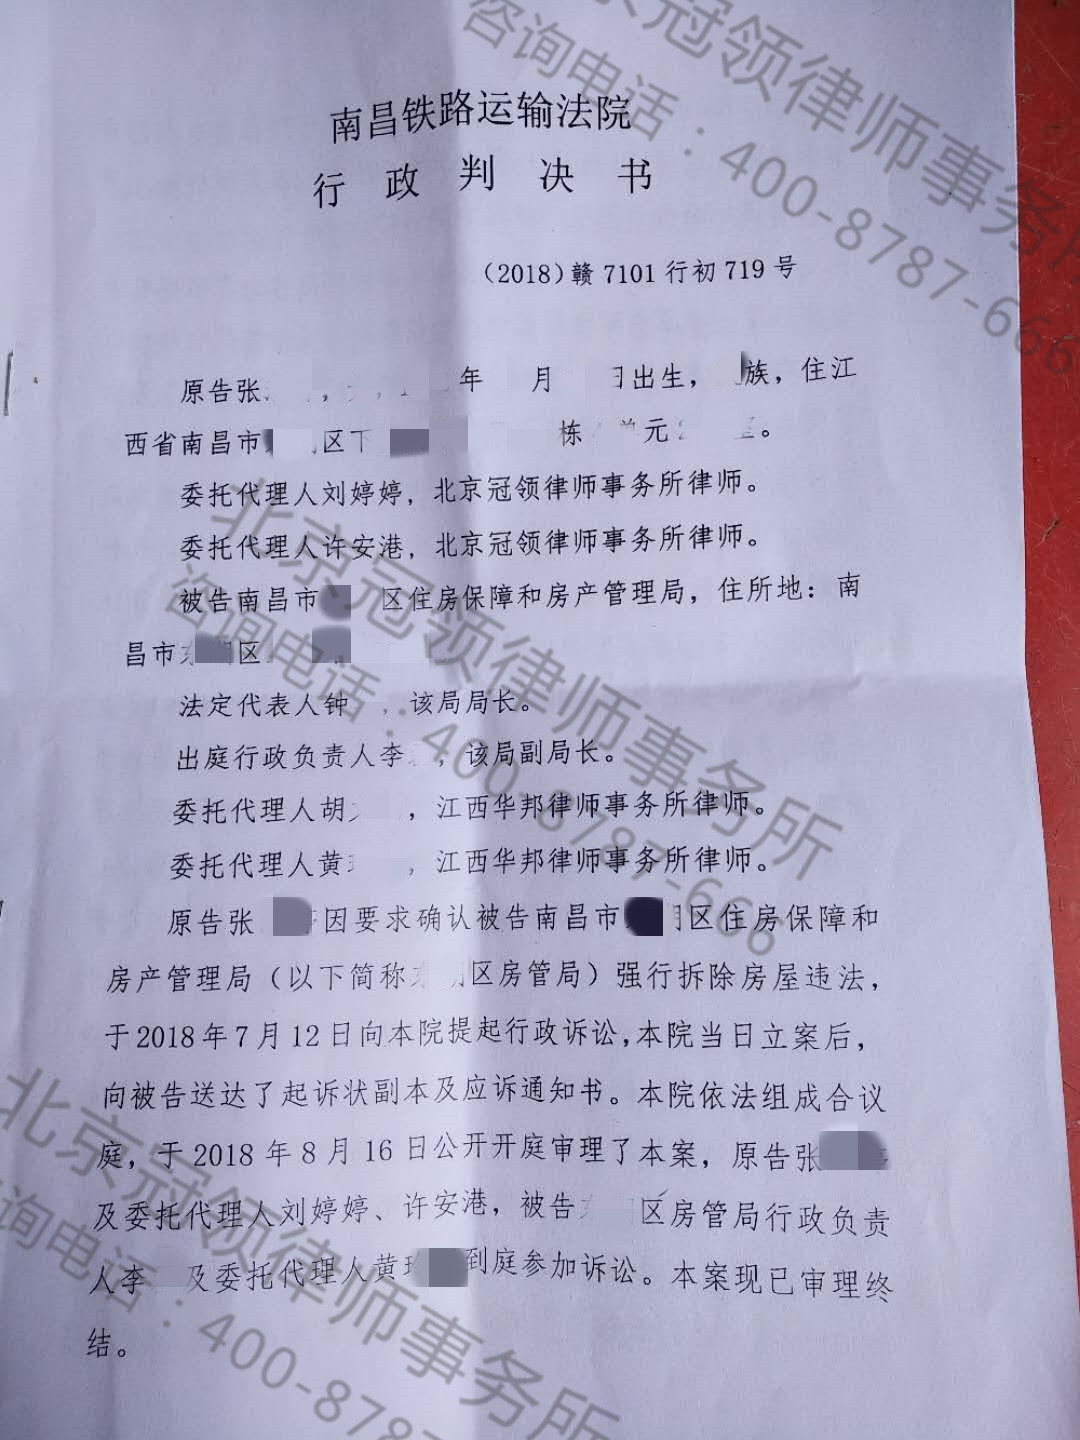 南昌铁路运输法院
行政判决书
(2018)赣7101行初719号
原告张 , 年 月 日出生, 族,住江
西省南昌市 区下 栋 单元 。
委托代理人刘婷婷,北京冠领律师事务所律师。
委托代理人许安港,北京冠领律师事务所律师。
被告南昌市 区住房保障和房产管理局,住所地:南
昌市 区
法定代表人钟 ,该局局长。
出庭行政负责人李 ,该局副局长。
委托代理人胡 ,江西华邦律师事务所律师。
委托代理人黄 ,江西华邦律师事务所律师。
原告张 因要求确认被告南昌市 区住房保障和
房产管理局(以下简称 区房管局)强行拆除房屋违法,
于2018年7月12日向本院提起行政诉讼,本院当日立案后,
向被告送达了起诉状副本及应诉通知书。本院依法组成合议
庭,于2018年8月16日公开开庭审理了本案,原告张
及委托代理人刘婷婷、许安港,被告 区房管局行政负责
人李 及委托代理人黄 到庭参加诉讼。本案现已审理终
结。
北京冠领律师事务所
咨询电话:400-8787-666
北京冠领律师事务所
咨询电话:400-8787-666
北京冠领律师事务所
咨询电话:400-8787